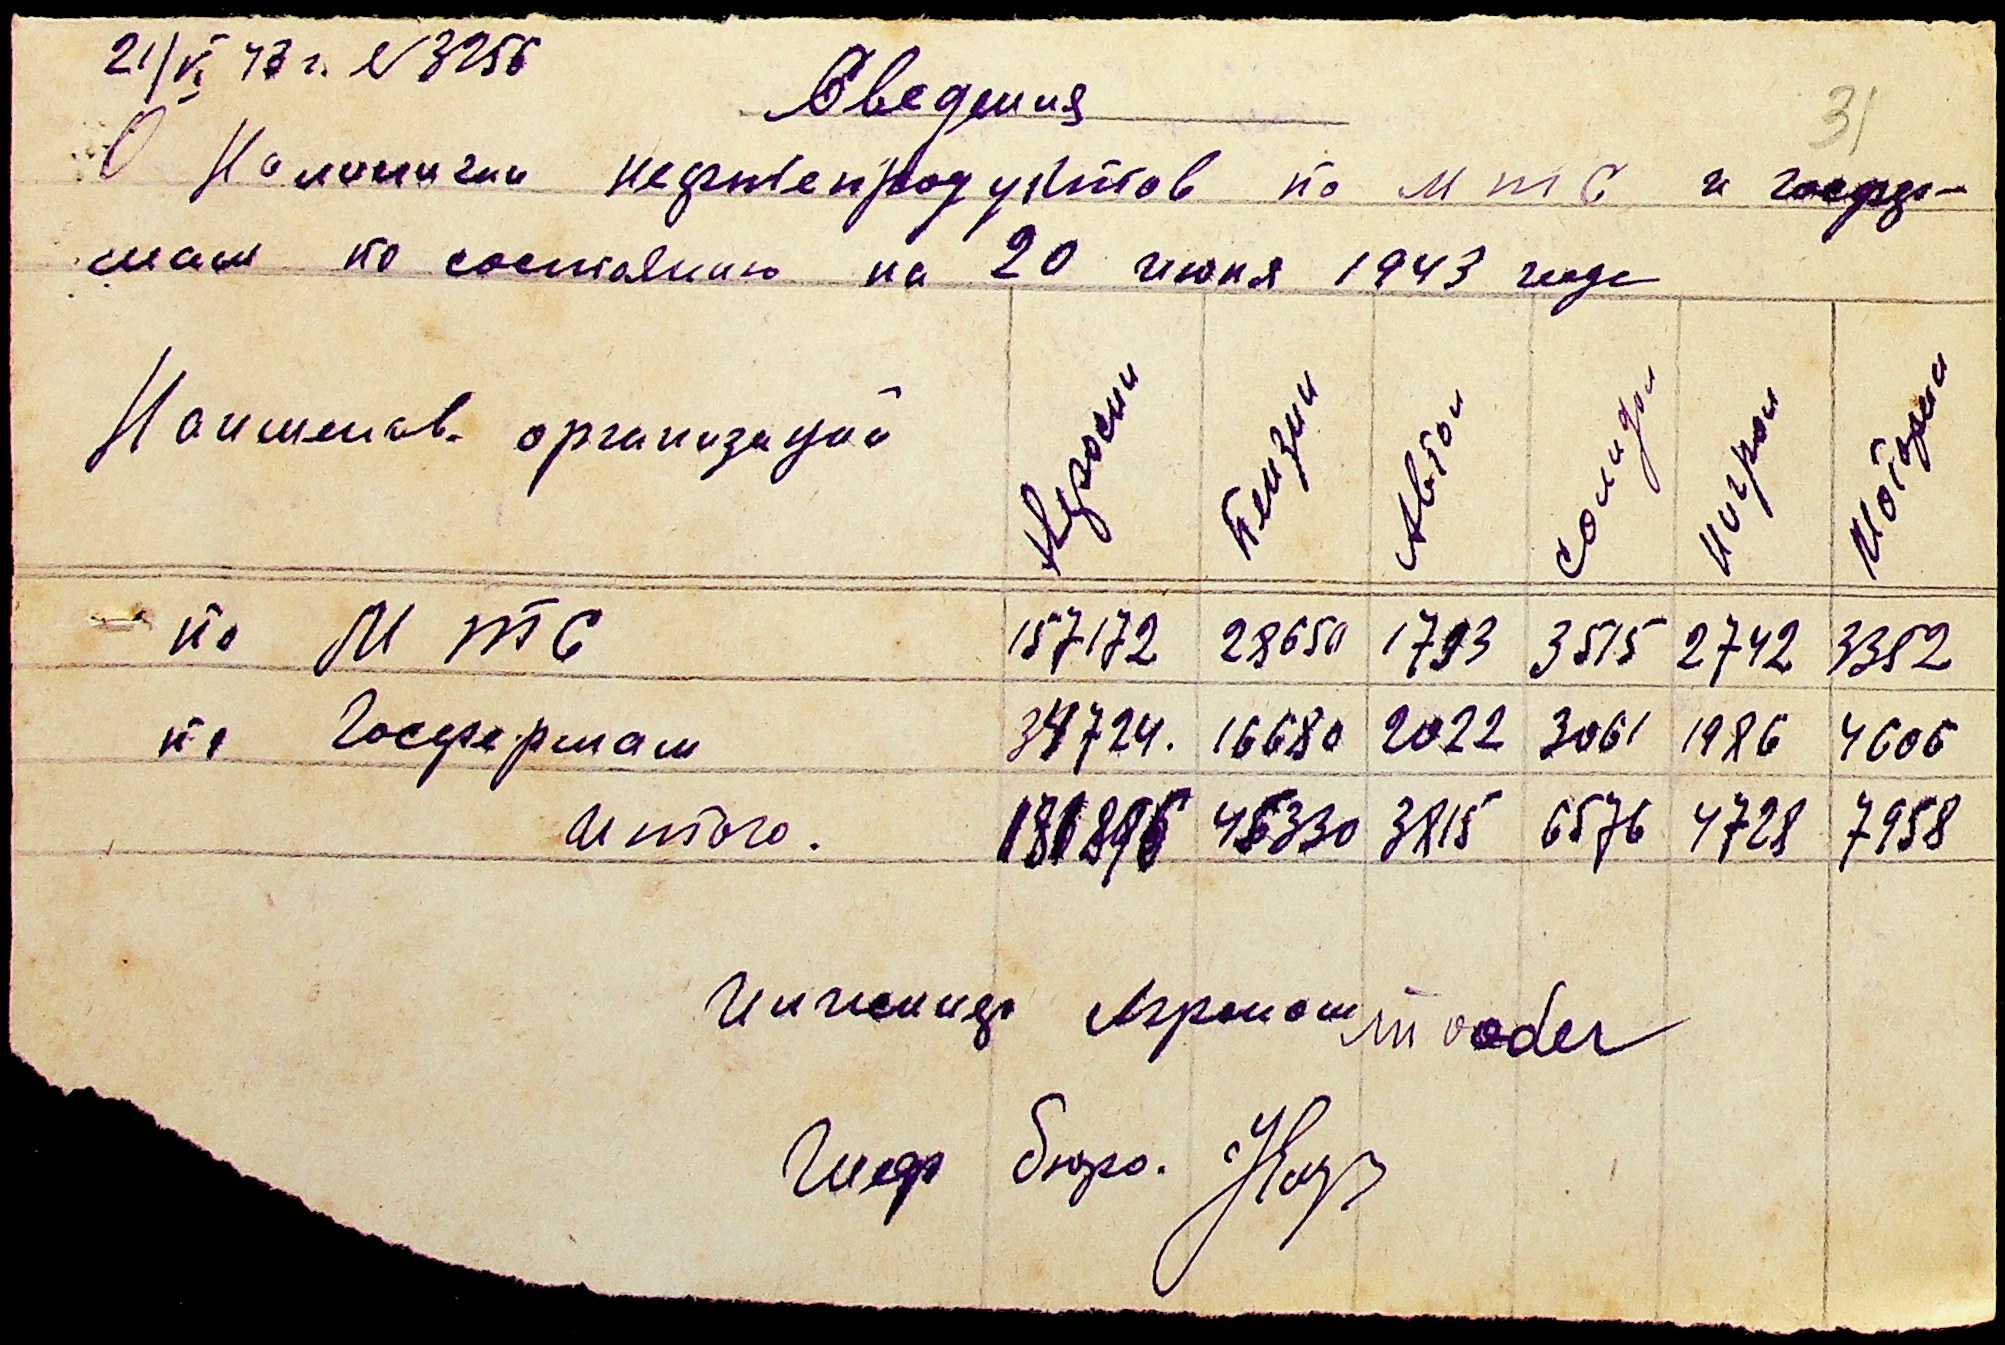 21/VI 43 г. № 3256
Сведения
31
О Наличии нефтепродуктов по МТС и госфер-
мам по состоянию на 20 июня 1943 года
Наименов. организаций Керосин Бензин Автол Солидол Нигрол
по МТС 157172 28650 1793 3515 2742 3352
по Госфермам 724. 16680 2022 3061 1986 4606
Итого. 45330 3815 6576 4728 7958
Агроном
Шеф бюро.